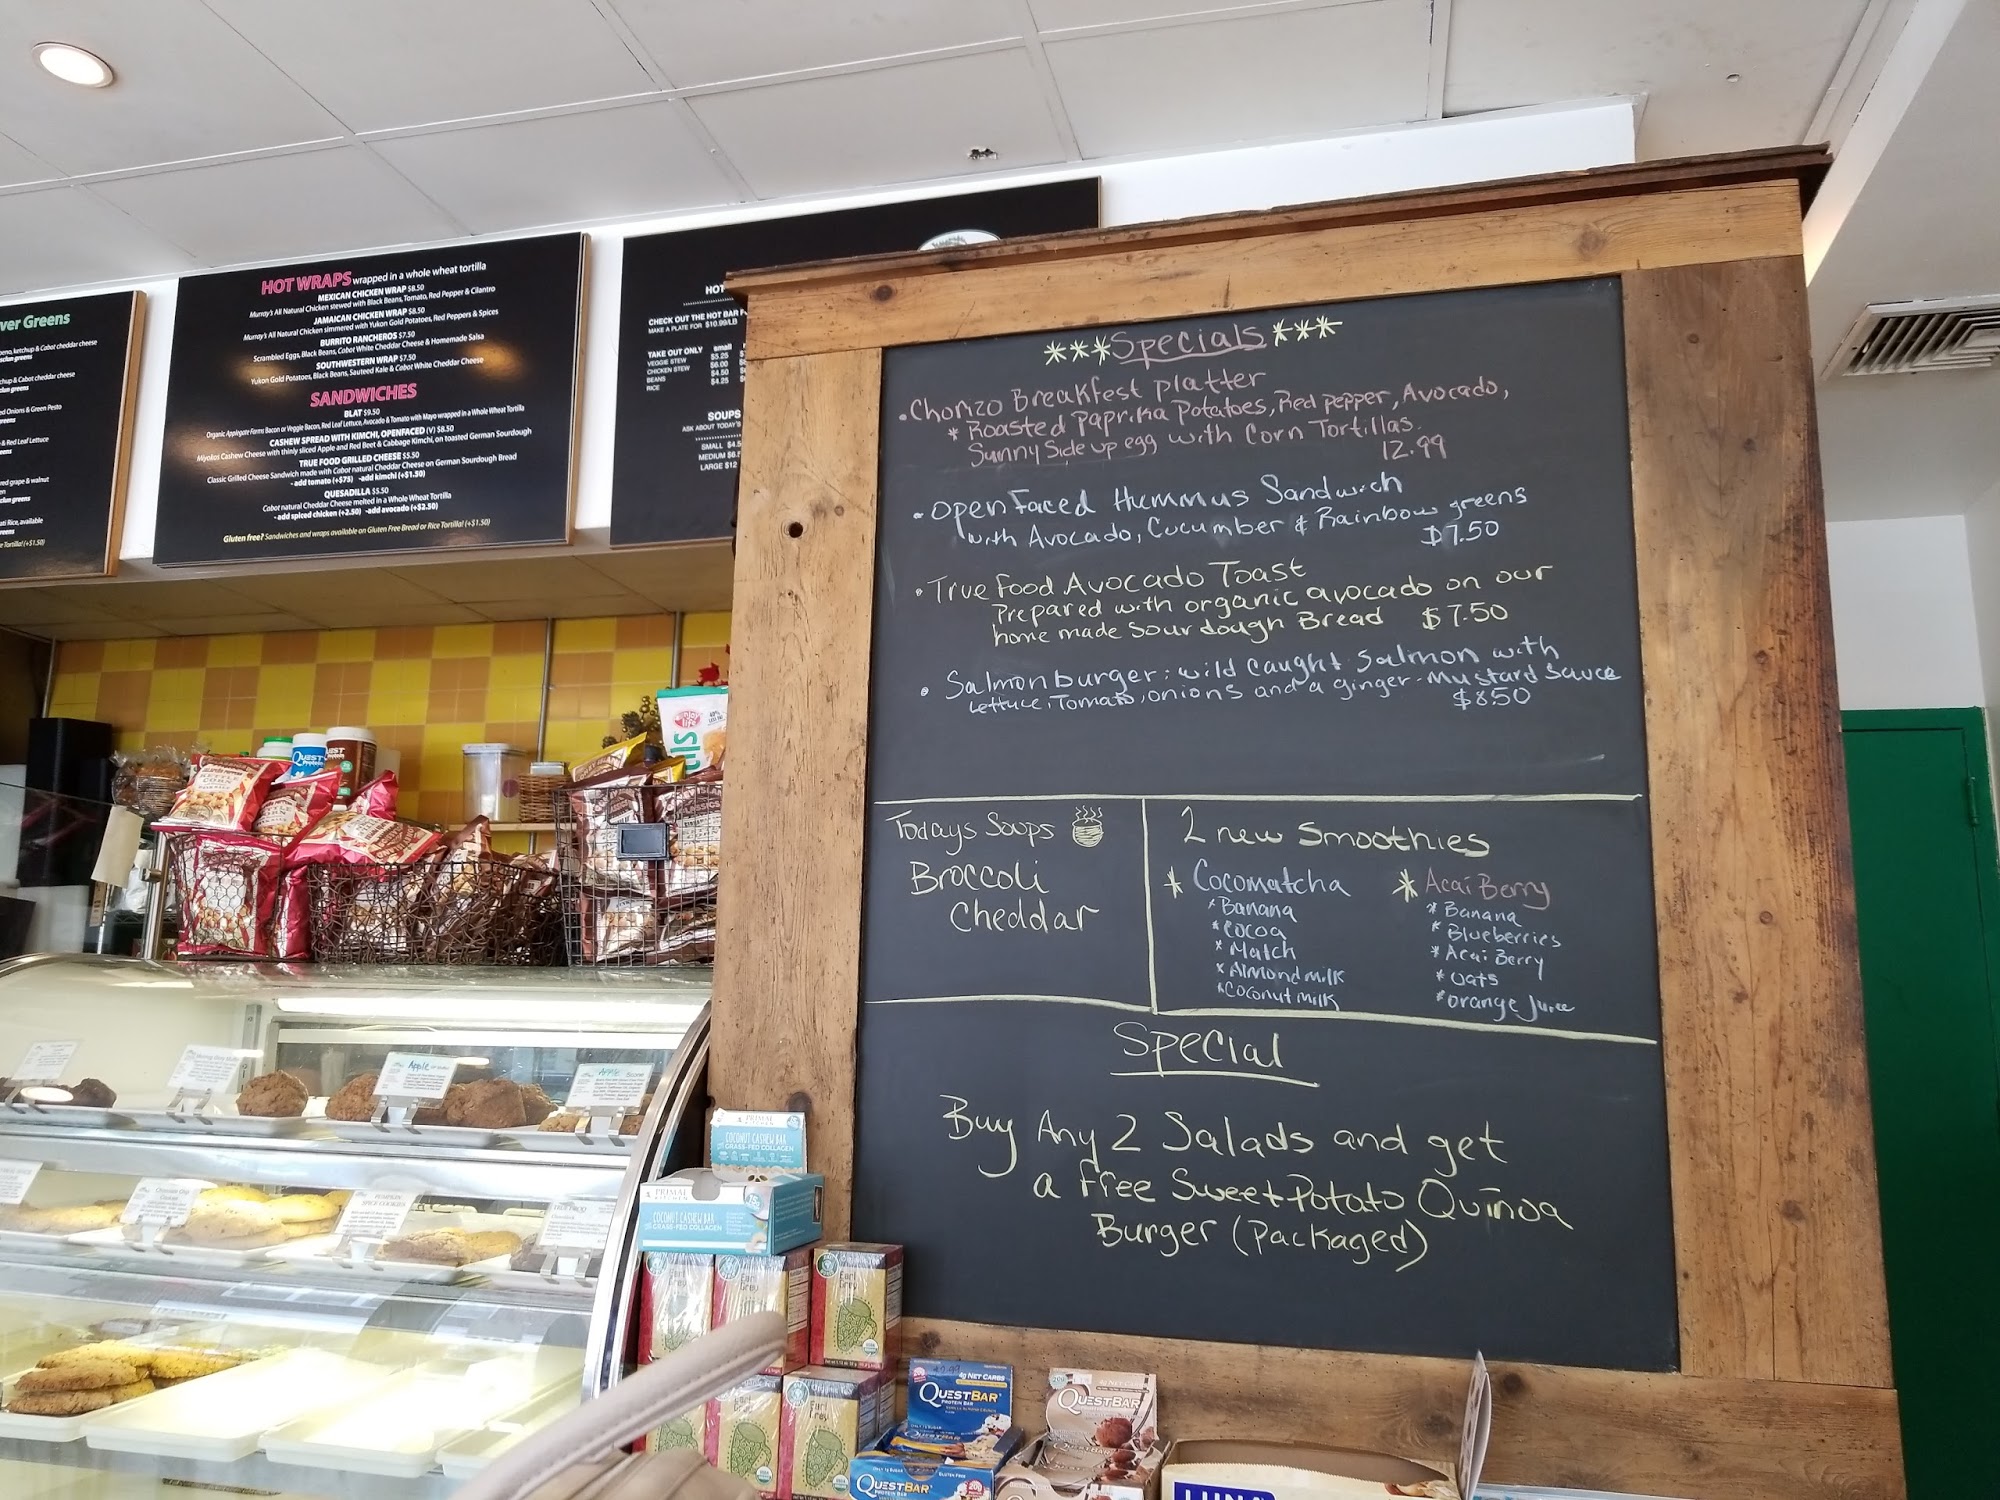 ver Greens
peno, ketchup & Cabot cheddar cheese
chup & Cabot cheddar cheese
ed Onions & Green Pesto
& Red Leaf Lettuce
red grape & walnut
ti Rice, available
e Tortilla! (+$1.50)
HOT WRAPS wrapped in a whole wheat tortilla
MEXICAN CHICKEN WRAP $8.50
Murray's All Natural Chicken stewed with Black Beans, Tomato, Red Pepper & Cilantro
JAMAICAN CHICKEN WRAP $8.50
Murray's All Natural Chicken simmered with Yukon Gold Potatoes, Red Peppers & Spices
BURRITO RANCHEROS $7.50
Scrambled Eggs, Black Beans, Cabot White Cheddar Cheese & Homemade Salsa
SOUTHWESTERN WRAP $7.50
Yukon Gold Potatoes, Black Beans, Sauteed Kale & Cabot White Cheddar Cheese
SANDWICHES
BLAT $9.50
Organic Applegate Farms Bacon or Veggie Bacon, Red Leaf Lettuce, Avocado & Tomato with Mayo wrapped in a Whole Wheat Tortilla
CASHEW SPREAD WITH KIMCHI, OPENFACED (V) $8.50
Miyokos Cashew Cheese with thinly sliced Apple and Red Beet & Cabbage Kimchi, on toasted German Sourdough
TRUE FOOD GRILLED CHEESE $5.50
Classic Grilled Cheese Sandwich made with Cabot natural Cheddar Cheese on German Sourdough Bread
- add tomato (+$75) -add kimchi (+$1.50)
QUESADILLA $5.50
Cabot natural Cheddar Cheese melted in a Whole Wheat Tortilla
- add spiced chicken (+2.50) -add avocado (+$2.50)
Gluten free? Sandwiches and wraps available on Gluten Free Bread or Rice Tortilla! (+$1.50)
HOT
CHECK OUT THE HOT BAR F
MAKE A PLATE FOR $10.99/LB
TAKE OUT ONLY small
VEGGIE STEW $5.25
CHICKEN STEW $6.00
BEANS $4.50
RICE $4.25
SOUPS
ASK ABOUT TODAY'S
SMALL $4.5
MEDIUM $6.
LARGE $12
***Specials***
• Chorizo Breakfest platter
* Roasted Paprika Potatoes, Red pepper, Avocado,
Sunny Side up egg with Corn Tortillas.
12.99
• Open Faced Hummus Sandwich
with Avocado, Cucumber & Rainbow greens
$7.50
• True Food Avocado Toast
Prepared with organic avocado on our
home made Sourdough Bread $7.50
• Salmon burger: wild caught Salmon with
Lettuce, Tomato, onions and a ginger-mustard sauce
$8.50
Todays Soups
Broccoli
Cheddar
2 new Smoothies
* Cocomatcha
* Banana
* Cocoa
* Match
* Almond milk
* Coconut milk
* Acai Berry
* Banana
* Blueberries
* Acai Berry
* oats
* orange Juice
Special
Buy Any 2 Salads and get
a free Sweet Potato Quinoa
Burger (Packaged)
KETTLE
CORN
QUEST
Protein
enjoy
life
Apple
Apple Scone
PRIMAL
KITCHEN
COCONUT CASHEW BAR
GRASS-FED COLLAGEN
PRIMAL
KITCHEN
COCONUT CASHEW BAR
GRASS-FED COLLAGEN
Chocolate Chip
PUMPKIN
SPICE COOKIES
Earl
Grey
Earl
Grey
Earl
Grey
Earl
Grey
Earl
Grey
4g NET CARBS
QUESTBAR
PROTEIN BAR
QUESTBAR
QUESTBAR
LUNA